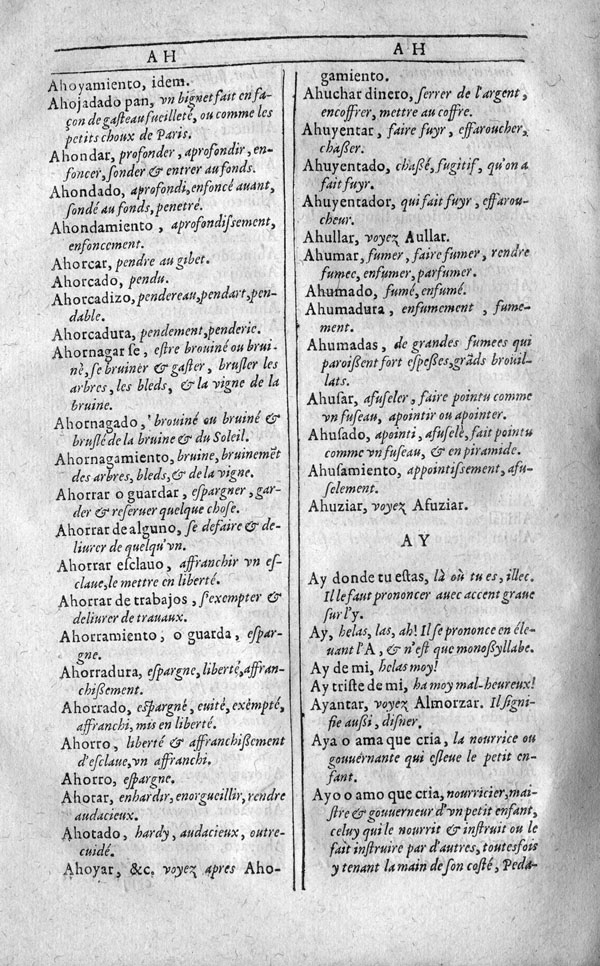 AH
Ahoyamiento, idem.
Ahojadado pan, vn bignet fait en fa-
çon de gasteau fueilleté, ou comme les
petits choux de Paris.
Ahondar, profonder, aprofondir, en-
foncer, sonder & entrer au fonds.
Ahondado, aprofondi, enfoncé auant,
sondé au fonds, penetré.
Ahondamiento, aprofondissement,
enfoncement.
Ahorcar, pendre au gibet.
Ahorcado, pendu.
Ahorcadizo, pendereau, pendart, pen-
dable.
Ahorcadura, pendement, penderie.
Ahornagar se, estre brouiné ou brui-
nè, se bruiner & gaster, brusler les
arbres, les bleds, & la vigne de la
bruine.
Ahornagado, brouiné ou bruiné &
bruslé de la bruine & du Soleil.
Ahornagamiento, bruine, bruinemẽt
des arbres, bleds, & de la vigne.
Ahorrar o guardar, espargner, gar-
der & reseruer quelque chose.
Ahorrar de alguno, se defaire & de-
liurer de quelqu'vn.
Ahorrar esclauo, affranchir vn es-
claue, le mettre en liberté.
Ahorrar de trabajos, s'exempter &
deliurer de trauaux.
Ahorramiento, o guarda, espar-
gne.
Ahorradura, espargne, liberté, affran-
chissement.
Ahorrado, espargné, euité, exẽpté,
affranchi, mis en liberté.
Ahorro, liberté & affranchissement
d'esclaue, vn affranchi.
Ahorro, espargne.
Ahotar, enhardir, enorgueillir, rendre
audacieux.
Ahotado, hardy, audacieux, outre-
cuidé.
Ahoyar, &c. voyez apres Aho-
AH
gamiento.
Ahuchar dinero, serrer de l'argent,
encoffrer, mettre au coffre.
Ahuyentar, faire fuyr, effaroucher,
chasser.
Ahuyentado, chassé, fugitif, qu'on a
fait fuyr.
Ahuyentador, qui fait fuyr, effarou-
cheur.
Ahullar, voyez Aullar.
Ahumar, fumer, faire fumer, rendre
fumee, enfumer, parfumer.
Ahumado, fumé, enfumé.
Ahumadura, enfumement, fume-
ment.
Ahumadas, de grandes fumees qui
paroissent fort espesses, grãds brouil-
lats.
Ahusar, afuseler, faire pointu comme
vn fuseau, apointir ou apointer.
Ahusado, apointi, afuselé, fait pointu
comme vn fuseau, & en piramide.
Ahusamiento, appointissement, afu-
selement.
Ahuziar, voyez Afuziar.
AY
Ay donde tu estas, là où tu es, illec.
Il le faut prononcer auec accent graue
sur l'y.
Ay, helas, las, ah! Il se prononce en éle-
uant l'A, & n'est que monossyllabe.
Ay de mi, helas moy!
Ay triste de mi, ha moy mal-heureux!
Ayantar, voyez Almorzar. Il signi-
fie aussi, disner.
Aya o ama que cria, la nourrice ou
gouuernante qui esleue le petit en-
fant.
Ayo o amo que cria, nourricier, mai-
stre & gouuerneur d'vn petit enfant,
celuy qui le nourrit & instruit ou le
fait instruire par d'autres, toutesfois
y tenant la main de son costé, Peda-